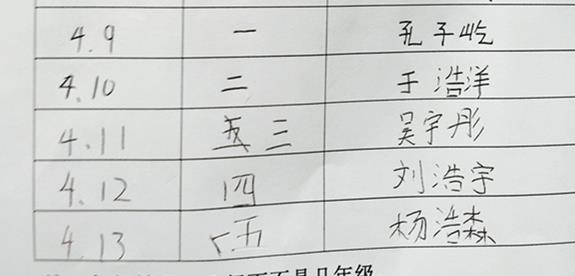 4.9 一 孔子屹
4.10 二 于浩洋
4.11 三 吴宇彤
4.12 四 刘浩宇
4.13 五 杨浩森
是几年级